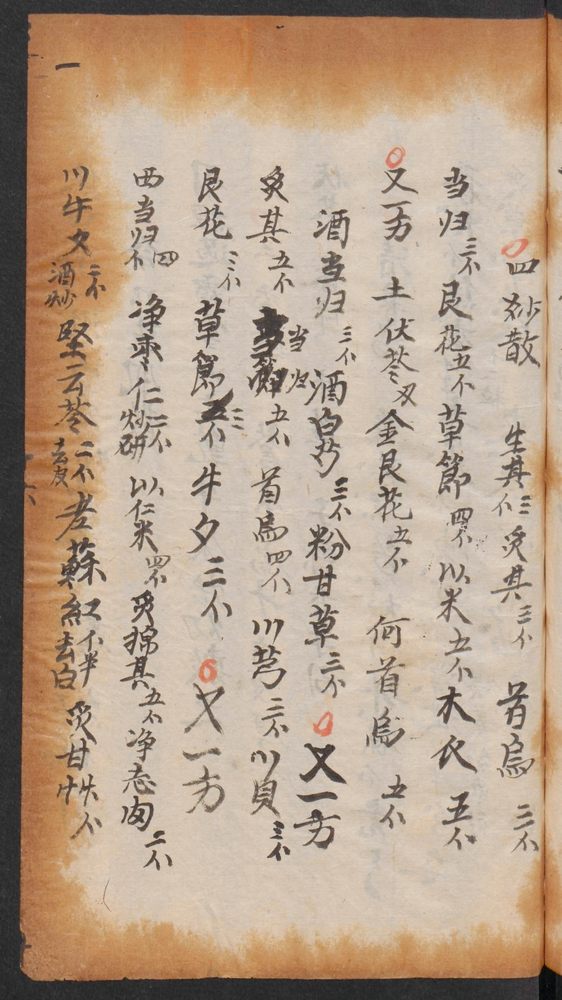 四妙散 生芪三个 炙芪三个 首烏三个
当归三个 艮花五个 草節四个 以米五个 木衣五个
又一方 土伏苓又 金艮花五个 何首烏五个
酒当归三个 酒白芍三个 粉甘草三个 又一方
炙芪五个 当归五个 首烏四个 川芎三个 川貝三个
艮花三个 草節三个 牛夕三个 又一方
西当归四个 净枣仁二个炒研 以仁米四个 炙綿芪五个 净志肉二个
川牛夕二个酒炒 堅云苓二个去皮 老蘇 紅个半去白 炙甘艸个